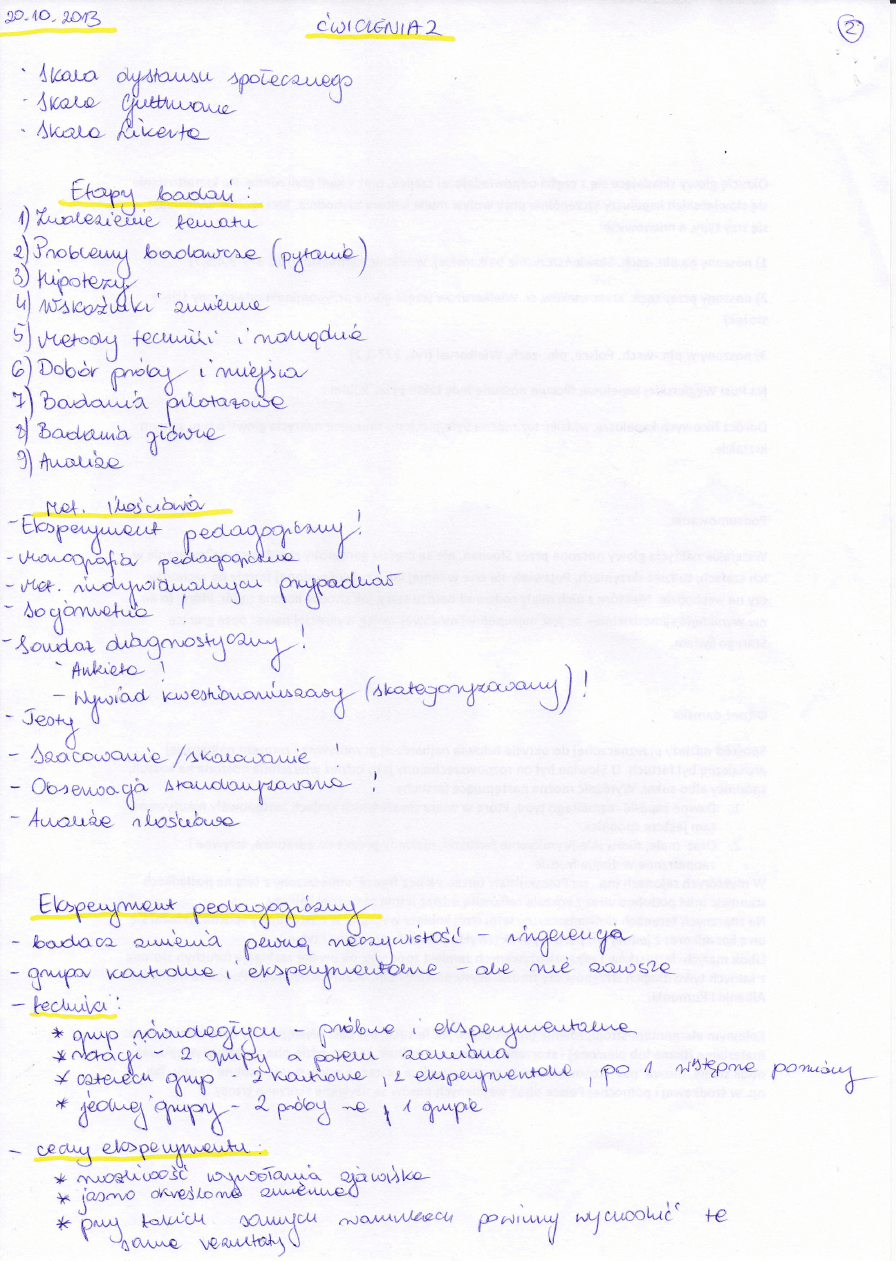 20.10.2013
ĆWICIENIA 2
2
· Skala dystansu społecznego
· Skala Guttmana
· Skala Likerta
Etapy badań:
1) Znalezienie tematu
2) Problemy badawcze (pytania)
3) Hipotezy
4) Wskaźniki zmienne
5) Metody techniki i narzędzia
6) Dobór próby i miejsca
7) Badania pilotażowe
8) Badania główne
9) Analiza
Met. ilościowa
- Eksperyment pedagogiczny!
- Monografia pedagogiczna
- Met. indywidualnych przypadków
- Socjometria
- Sondaż diagnostyczny!
· Ankieta!
- Wywiad kwestionariuszowy (skategoryzowany)!
- Testy
- Szacowanie / skalowanie!
- Obserwacja standaryzowana!
- Analiza ilościowa
Eksperyment pedagogiczny
- badacz zmienia pewną rzeczywistość - ingerencja
- grupa kontrolna i eksperymentalna - ale nie zawsze
- techniki:
* grup równoległych - próbna i eksperymentalna
* rotacji - 2 grupy a potem zamiana
* czterech grup - 2 kontrolne, 2 eksperymentalne, po 1 wstępne pomiary
* jednej grupy - 2 próby na 1 grupie
- cechy eksperymentu:
* możliwość wywołania zjawiska
* jasno określone zmienne
* przy takich samych warunkach powinny wychodzić te
same rezultaty